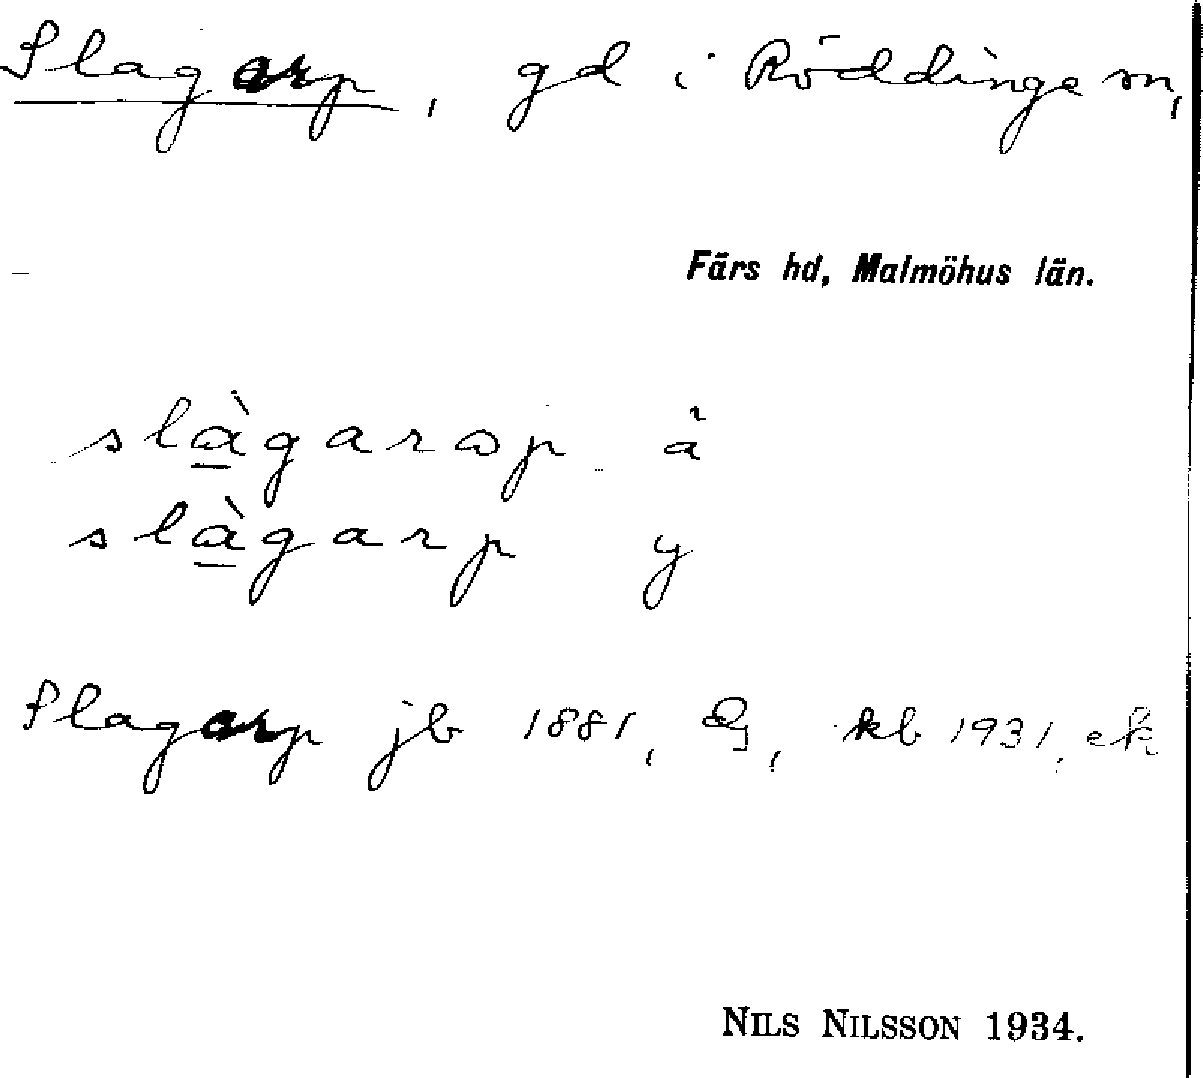 Slagarp, gd i Röddinge sn,
Färs hd, Malmöhus län.
slàgarəp ä
slàgarp y
Slagarp jb 1881, G, kb 1931, ek
NILS NILSSON 1934.